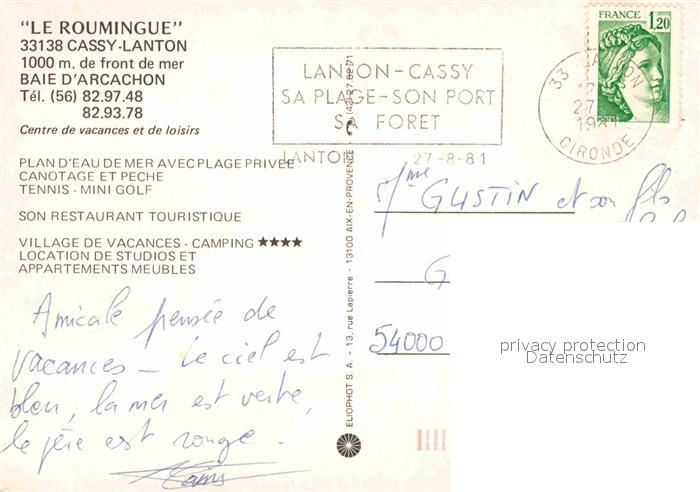 "LE ROUMINGUE"
33138 CASSY-LANTON
1000 m. de front de mer
BAIE D'ARCACHON
Tél. (56) 82.97.48
82.93.78
Centre de vacances et de loisirs
PLAN D'EAU DE MER AVEC PLAGE PRIVEE
CANOTAGE ET PECHE
TENNIS - MINI GOLF
SON RESTAURANT TOURISTIQUE
VILLAGE DE VACANCES - CAMPING ★★★★
LOCATION DE STUDIOS ET
APPARTEMENTS MEUBLES
Amicale pensée de
vacances - Le ciel est
bleu, la mer est verte,
le est rouge.
ELIOPHOT S.A. - 13, rue Lapierre - 13100 AIX-EN-PROVENCE
LANTON-CASSY
SA PLAGE-SON PORT
SA FORET
LANTON 27-8-81
33 LANTON
27
GIRONDE
FRANCE
1,20
POSTES
Mme GUSTIN et son fils
G
54000
privacy protection
Datenschutz